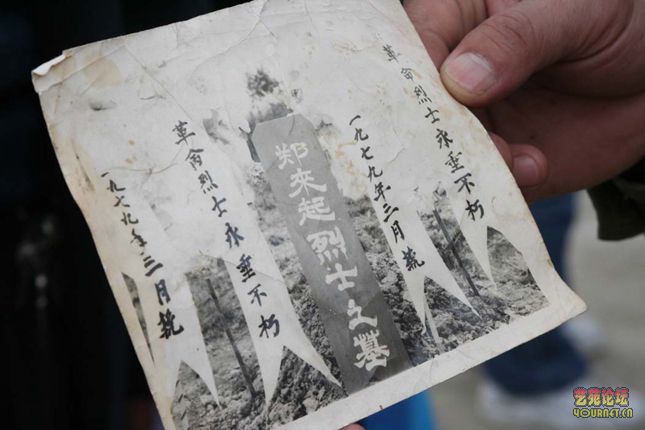 革命烈士永垂不朽
一九七九年三月
郑来起烈士之墓
革命烈士永垂不朽
一九七九年三月
艺苑论坛
YOURNET.CN